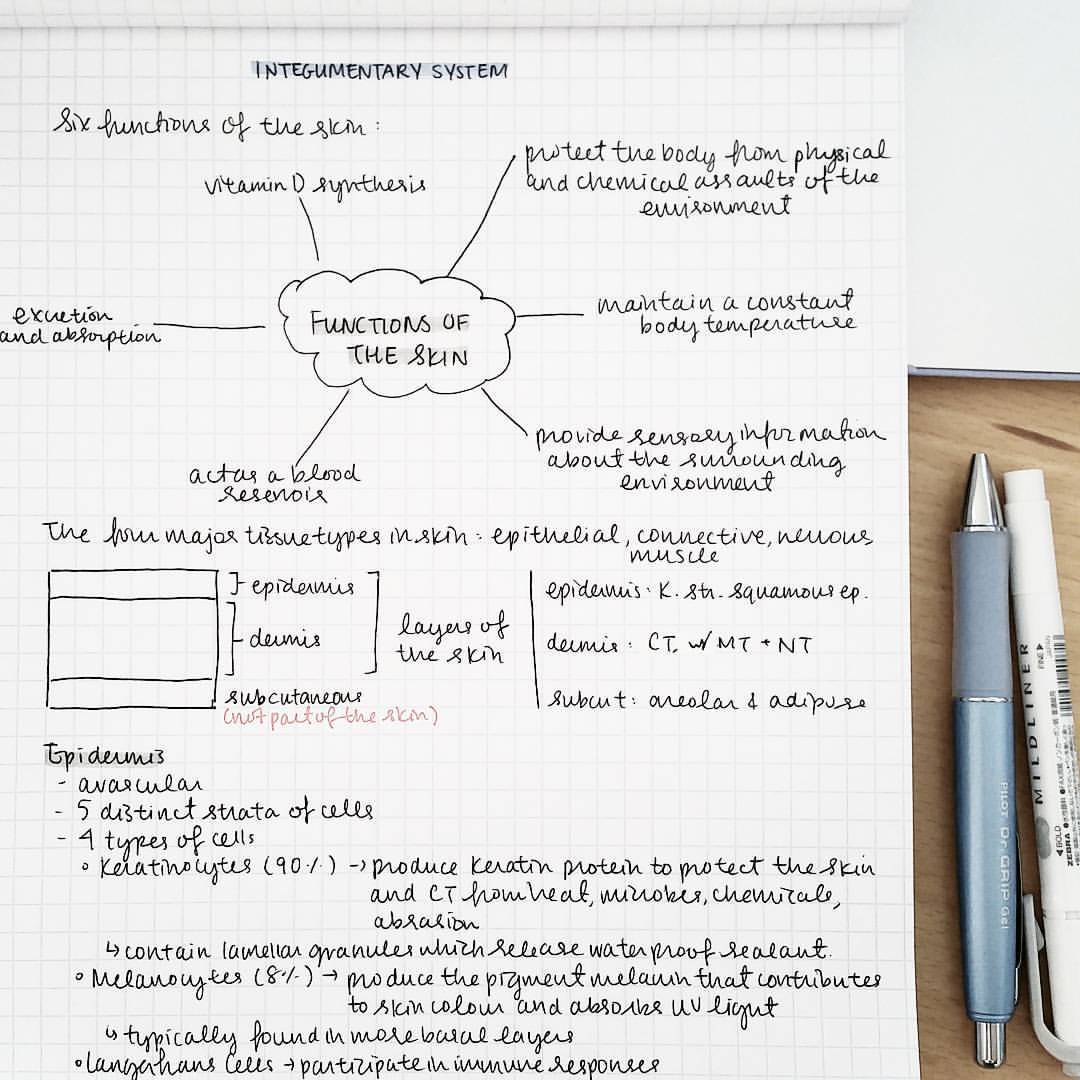 INTEGUMENTARY SYSTEM
six functions of the skin :
vitamin D synthesis
protect the body from physical
and chemical assaults of the
environment
excretion
and absorption
FUNCTIONS OF
THE SKIN
maintain a constant
body temperature
act as a blood
reservoir
provide sensory information
about the surrounding
environment
The four major tissue types in skin : epithelial, connective, nervous,
muscle
epidermis
dermis
layers of
the skin
subcutaneous
(not part of the skin)
epidermis: K. str. squamous ep.
dermis : CT, w/ MT + NT
subcut : areolar & adipose
Epidermis
- avascular
- 5 distinct strata of cells
- 4 types of cells
◦ Keratinocytes (90%) → produce keratin protein to protect the skin
and CT from heat, microbes, chemicals,
abrasion
↳ contain lamellar granules which release waterproof sealant.
◦ Melanocytes (8%) → produce the pigment melanin that contributes
to skin colour and absorbs UV light
↳ typically found in more basal layers
◦ Langerhans cells → participate in immune responses
PILOT Dr. GRIP Gel
MILDLINER
FINE
JAPAN
BOLD
ZEBRA